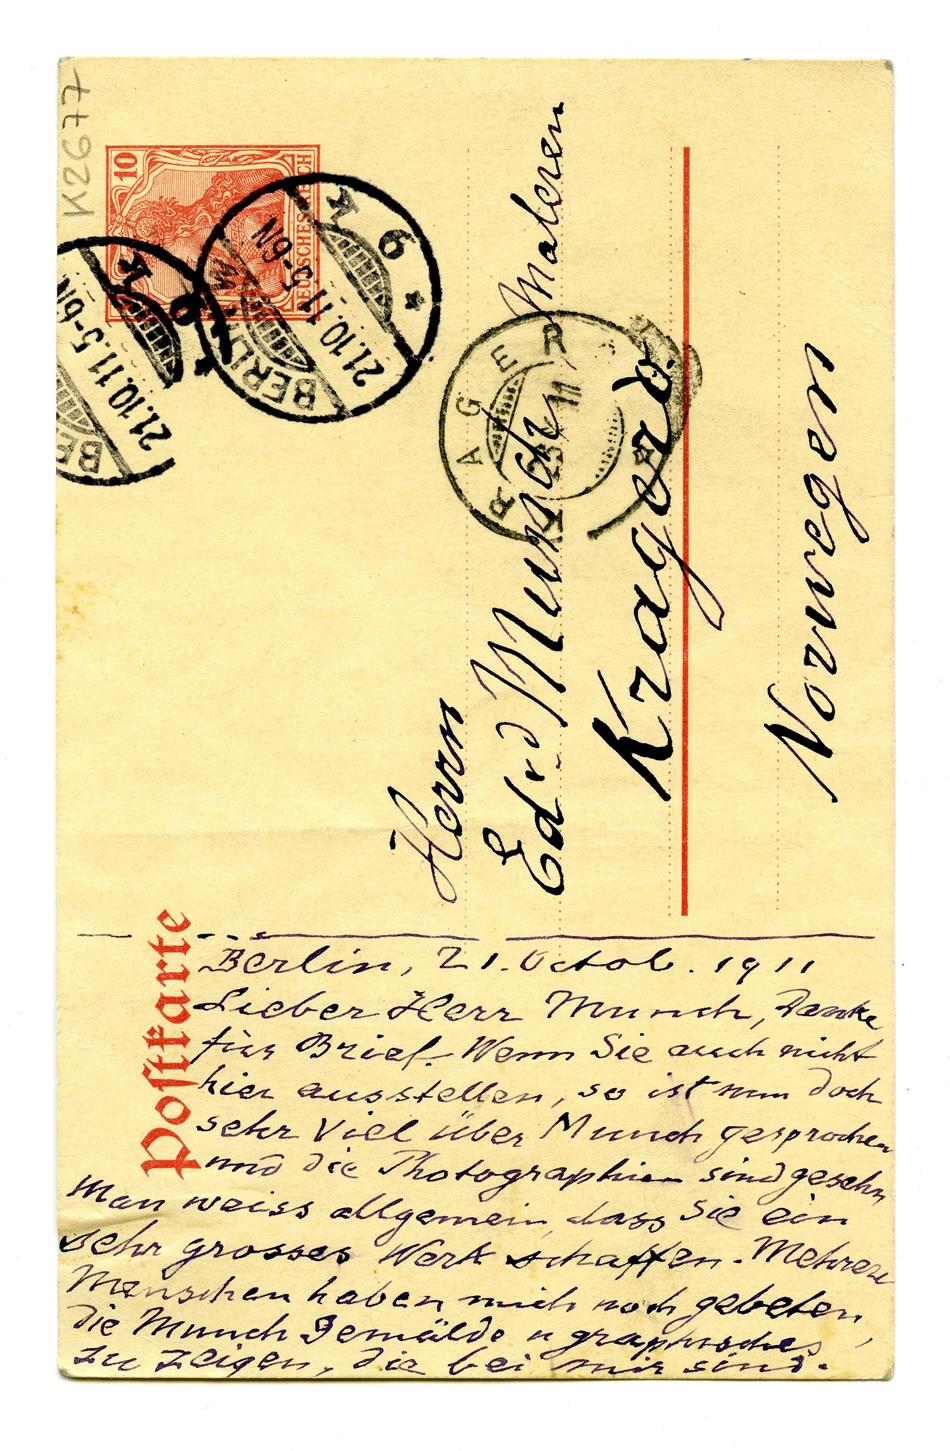 K2677
10
DEUTSCHES REICH
BERLIN W
21.10.11.5-6N
k 6 *
BE
21.10.11.5-6N
k 6 *
KRAGERØ
23 11
Herrn
Edvd Munch, Maleren
Kragerö.
Norwegen
Postkarte
Berlin, 21. Octob. 1911
Lieber Herr Munch, Danke
für Brief. Wenn Sie auch nicht
hier ausstellen, so ist nun doch
sehr viel über Munch gesprochen
und die Photographien sind gesehn
Man weiss allgemein, dass Sie ein
sehr grosses Werk schaffen. Mehrere
Menschen haben mich noch gebeten,
die Munch Gemälde u graphisches,
zu zeigen, die bei mir sind.